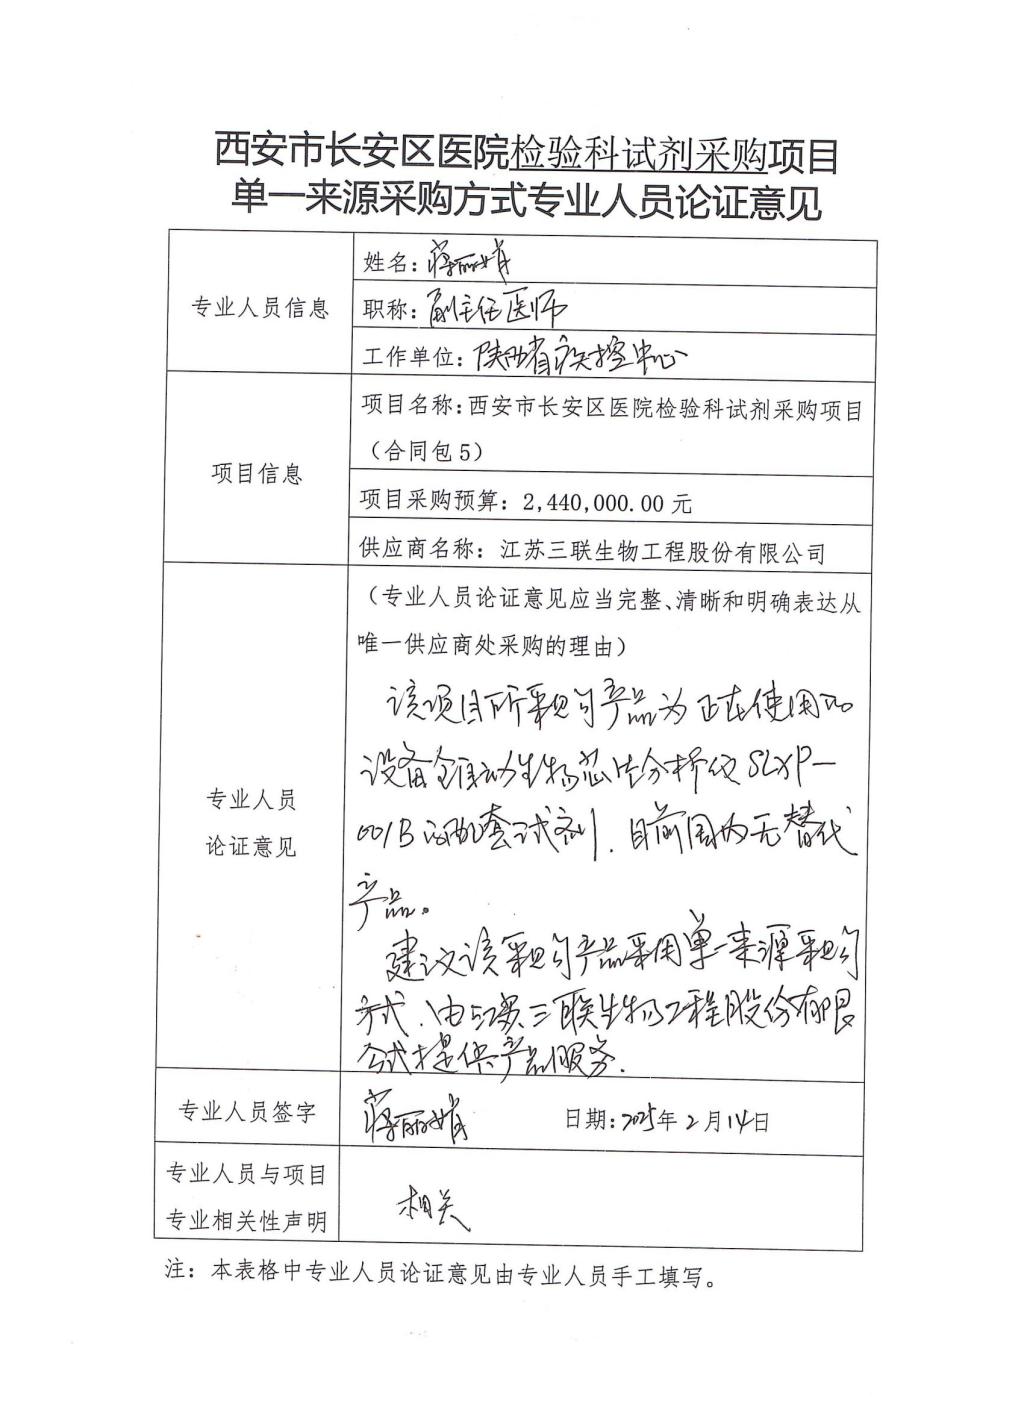 西安市长安区医院检验科试剂采购项目
单一来源采购方式专业人员论证意见
专业人员信息
姓名:蒋丽娟
职称:副主任医师
工作单位:陕西省疾控中心
项目信息
项目名称:西安市长安区医院检验科试剂采购项目
（合同包5）
项目采购预算：2,440,000.00 元
供应商名称：江苏三联生物工程股份有限公司
专业人员
论证意见
（专业人员论证意见应当完整、清晰和明确表达从
唯一供应商处采购的理由）
该项目所采购产品为正在使用的
设备全自动生物芯片分析仪SLXP-
001B的配套试剂，目前国内无替代
产品。
建议该采购产品采用单一来源采购
方式，由江苏三联生物工程股份有限
公司提供产品服务.
专业人员签字
蒋丽娟
日期:2025年2月14日
专业人员与项目
专业相关性声明
相关
注：本表格中专业人员论证意见由专业人员手工填写。